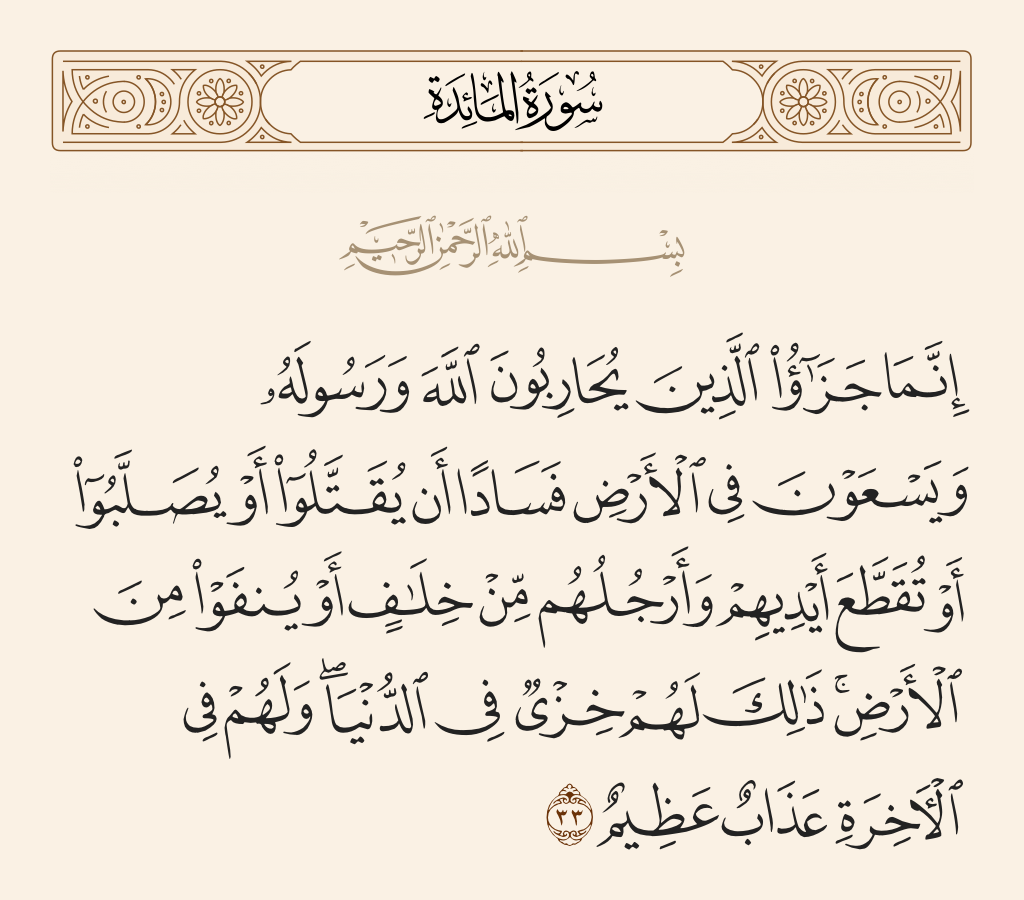 سُورَةُ المَائِدَةِ
بِسْمِ ٱللَّهِ ٱلرَّحْمَٰنِ ٱلرَّحِيمِ
إِنَّمَا جَزَٰٓؤُا۟ ٱلَّذِينَ يُحَارِبُونَ ٱللَّهَ وَرَسُولَهُۥ
وَيَسْعَوْنَ فِى ٱلْأَرْضِ فَسَادًا أَن يُقَتَّلُوٓا۟ أَوْ يُصَلَّبُوٓا۟
أَوْ تُقَطَّعَ أَيْدِيهِمْ وَأَرْجُلُهُم مِّنْ خِلَٰفٍ أَوْ يُنفَوْا۟ مِنَ
ٱلْأَرْضِ ۚ ذَٰلِكَ لَهُمْ خِزْىٌ فِى ٱلدُّنْيَا ۖ وَلَهُمْ فِى
ٱلْـَٔاخِرَةِ عَذَابٌ عَظِيمٌ ٣٣